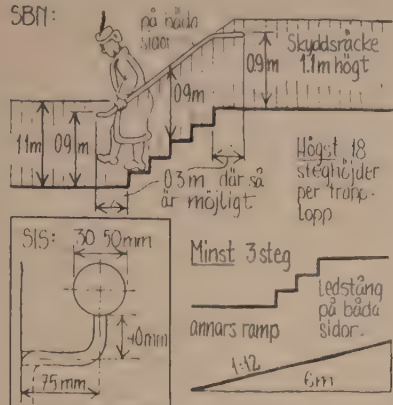 SBN:
på båda
sidor
Skyddsräcke
1.1m högt
0.9m
0.9m
1.1m
0.9m
0.3m där så
är möjligt
Högst 18
steghöjder
per trapp-
lopp
SIS:
30-50mm
40mm
75mm
Minst 3 steg
ledstång
på båda
sidor.
annars ramp
1:12
6m